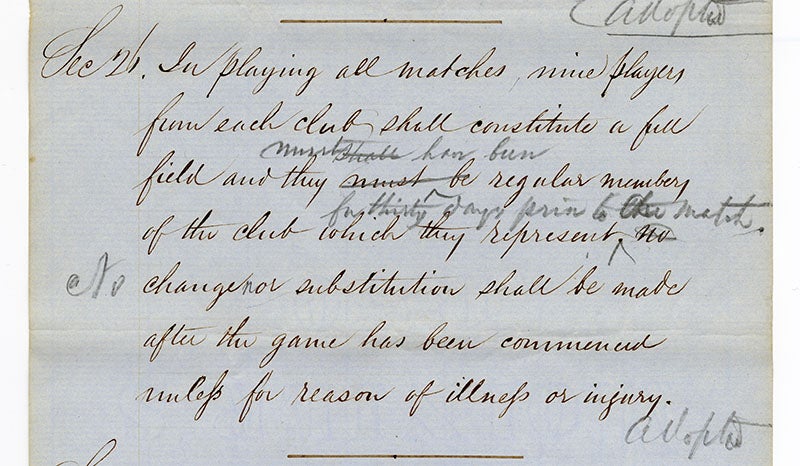 adopted
Sec 26. In playing all matches, nine players
from each club shall constitute a full
must shall have been
field and they must be regular members
for thirty days prior to the match.
of the club which they represent, no
No change nor substitution shall be made
after the game has been commenced
unless for reason of illness or injury.
adopted